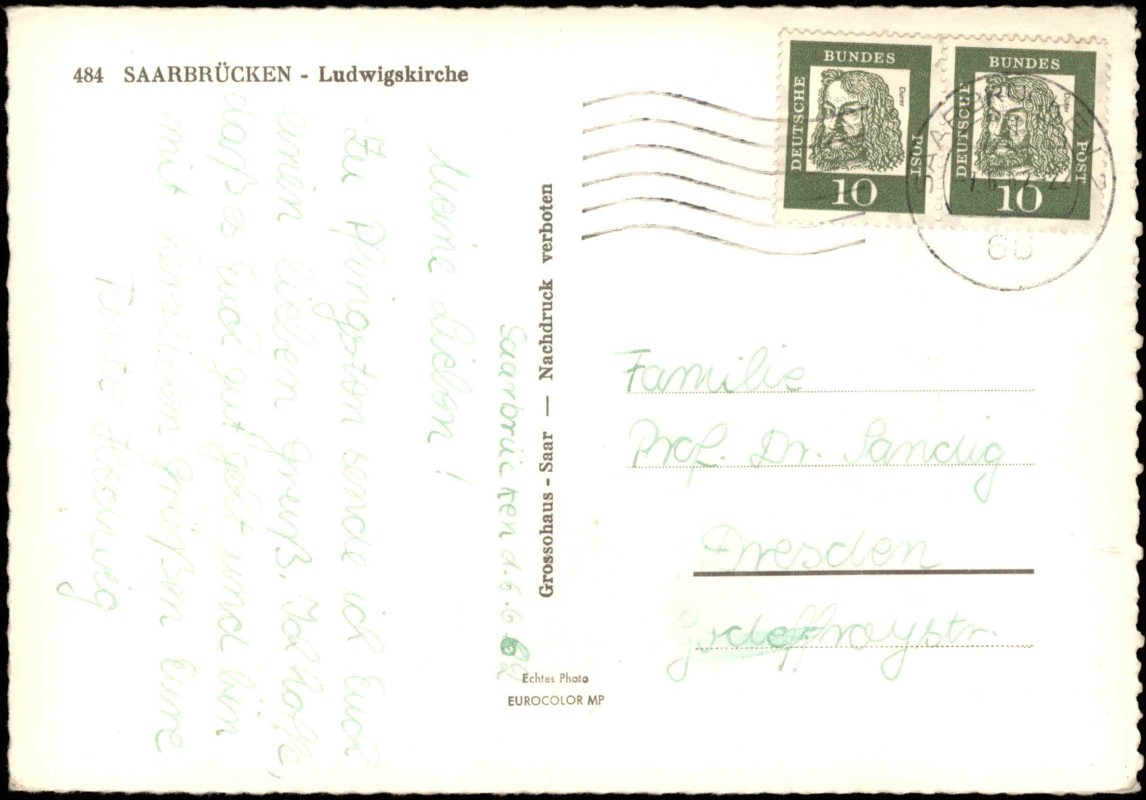 484 SAARBRÜCKEN - Ludwigskirche
Saarbrücken d. 6. 6 62
Meine Lieben!
Zu Pfingsten sende ich Euch
einen lieben Gruß. Ich hoffe,
daß es Euch gut geht und bin
mit herzlichen Grüßen Eure
Tante Hedwig
Grossohaus - Saar — Nachdruck verboten
Echtes Photo
EUROCOLOR MP
DEUTSCHE
BUNDES
POST
Dürer
10
DEUTSCHE
BUNDES
POST
Dürer
10
SAARBRÜCKEN 2
Familie
Prof. Dr. Sandig
Dresden
Godeffroystr.